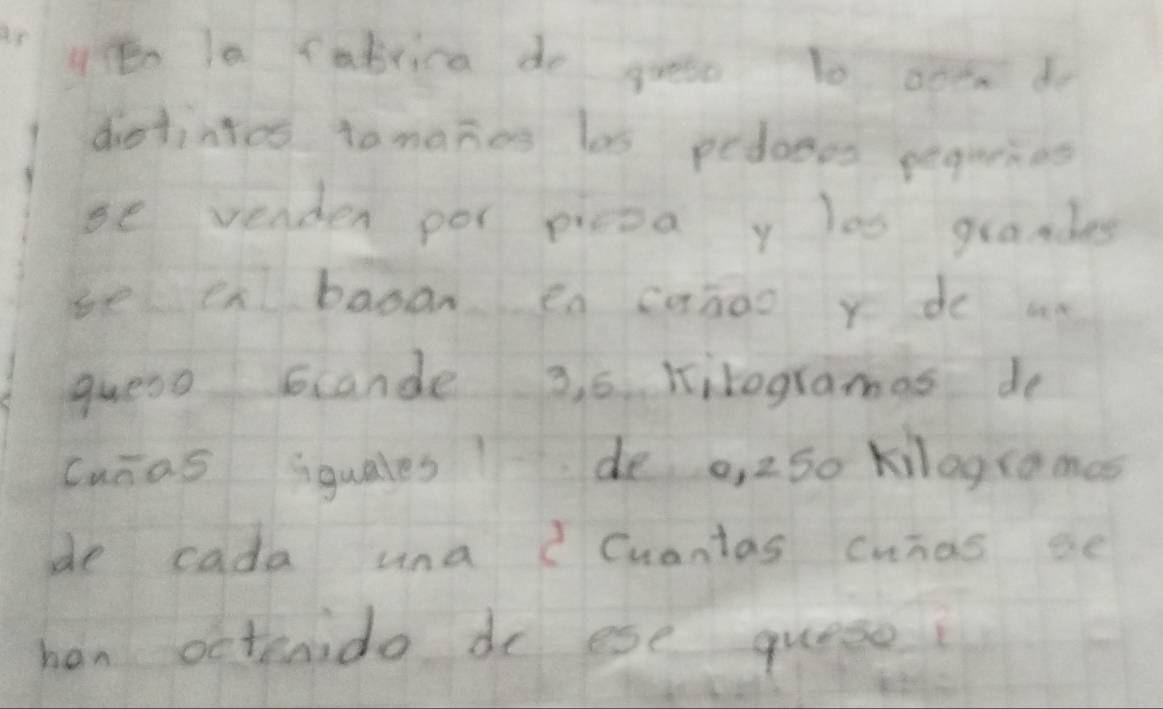 4 En la fabrica de queso lo de
distintos tomaños los pedasos pequeños
se venden por piesa y los grandes
se en basan en cuñas y de un
queso Grande 3,5 Kilogramos de
cuñas iguales de 0,250 Kilogramos
de cada una ¿ Cuantas cuñas se
han octenido de ese queso?